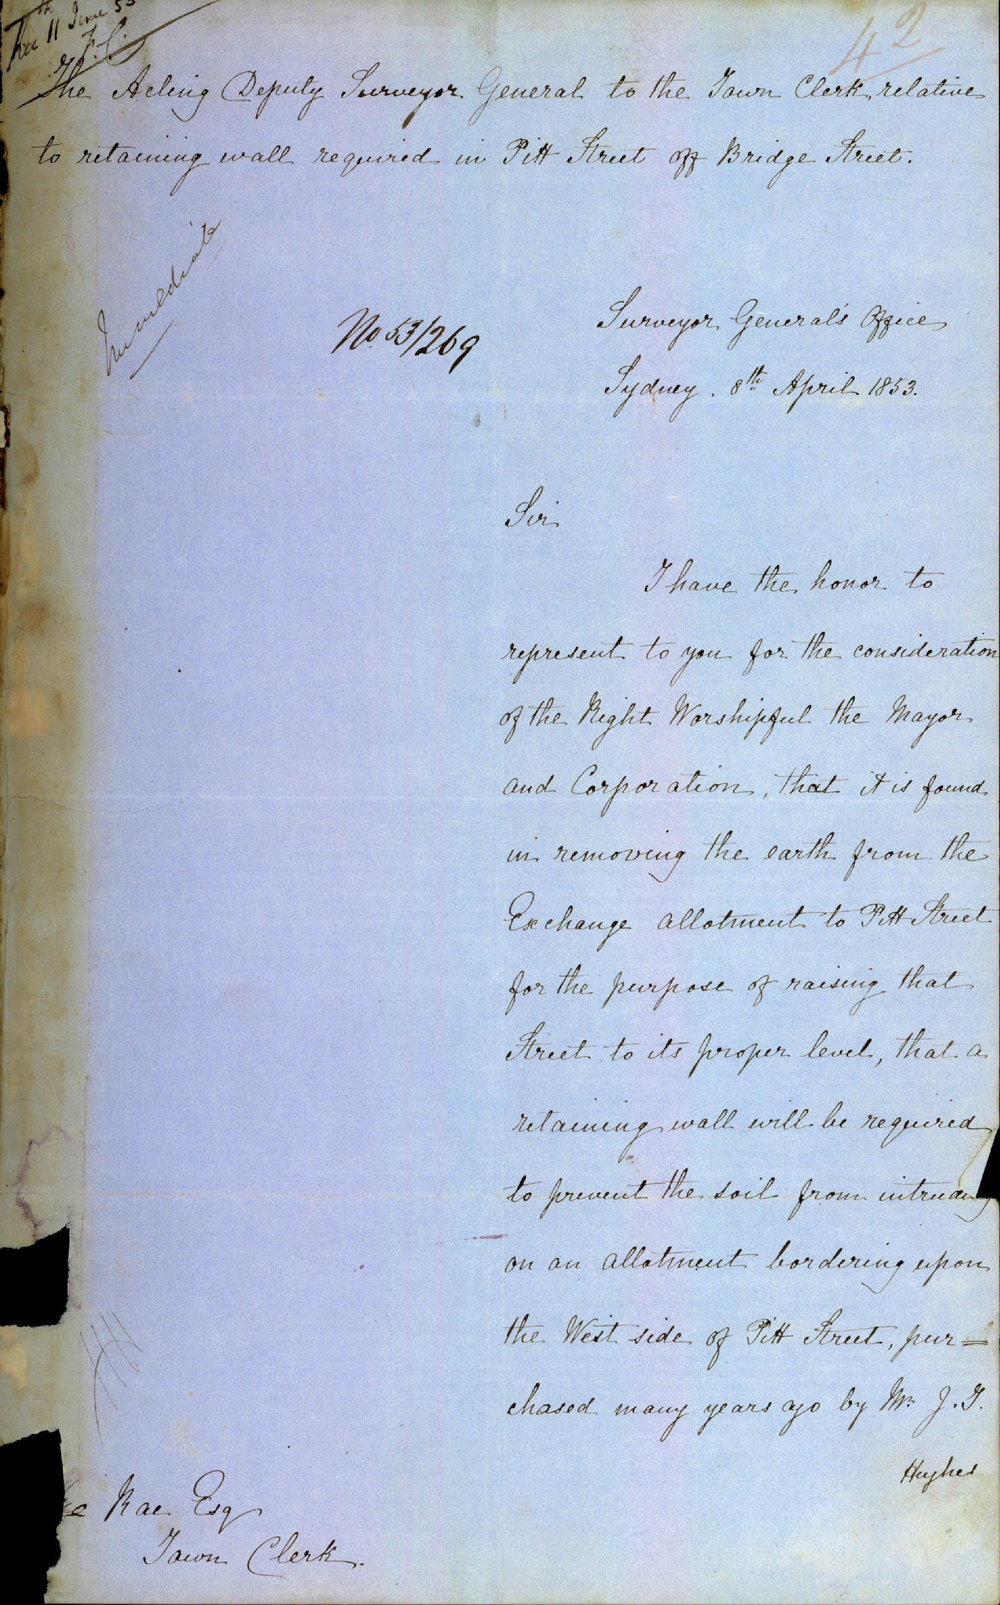 11th June 53
42
The Acting Deputy Surveyor General to the Town Clerk relative
to retaining wall required in Pitt Street off Bridge Street.
Immediate
No 53/269
Surveyor General's Office
Sydney. 8th April 1853.
Sir
I have the honor to
represent to you for the consideration
of the Right Worshipful the Mayor
and Corporation, that it is found
in removing the earth from the
Exchange allotment to Pitt Street
for the purpose of raising that
Street to its proper level, that a
retaining wall will be required
to prevent the soil from intruding
on an allotment bordering upon
the West side of Pitt Street, pur=
chased many years ago by Mr. J. T.
Hughes
Rae Esq
Town Clerk.